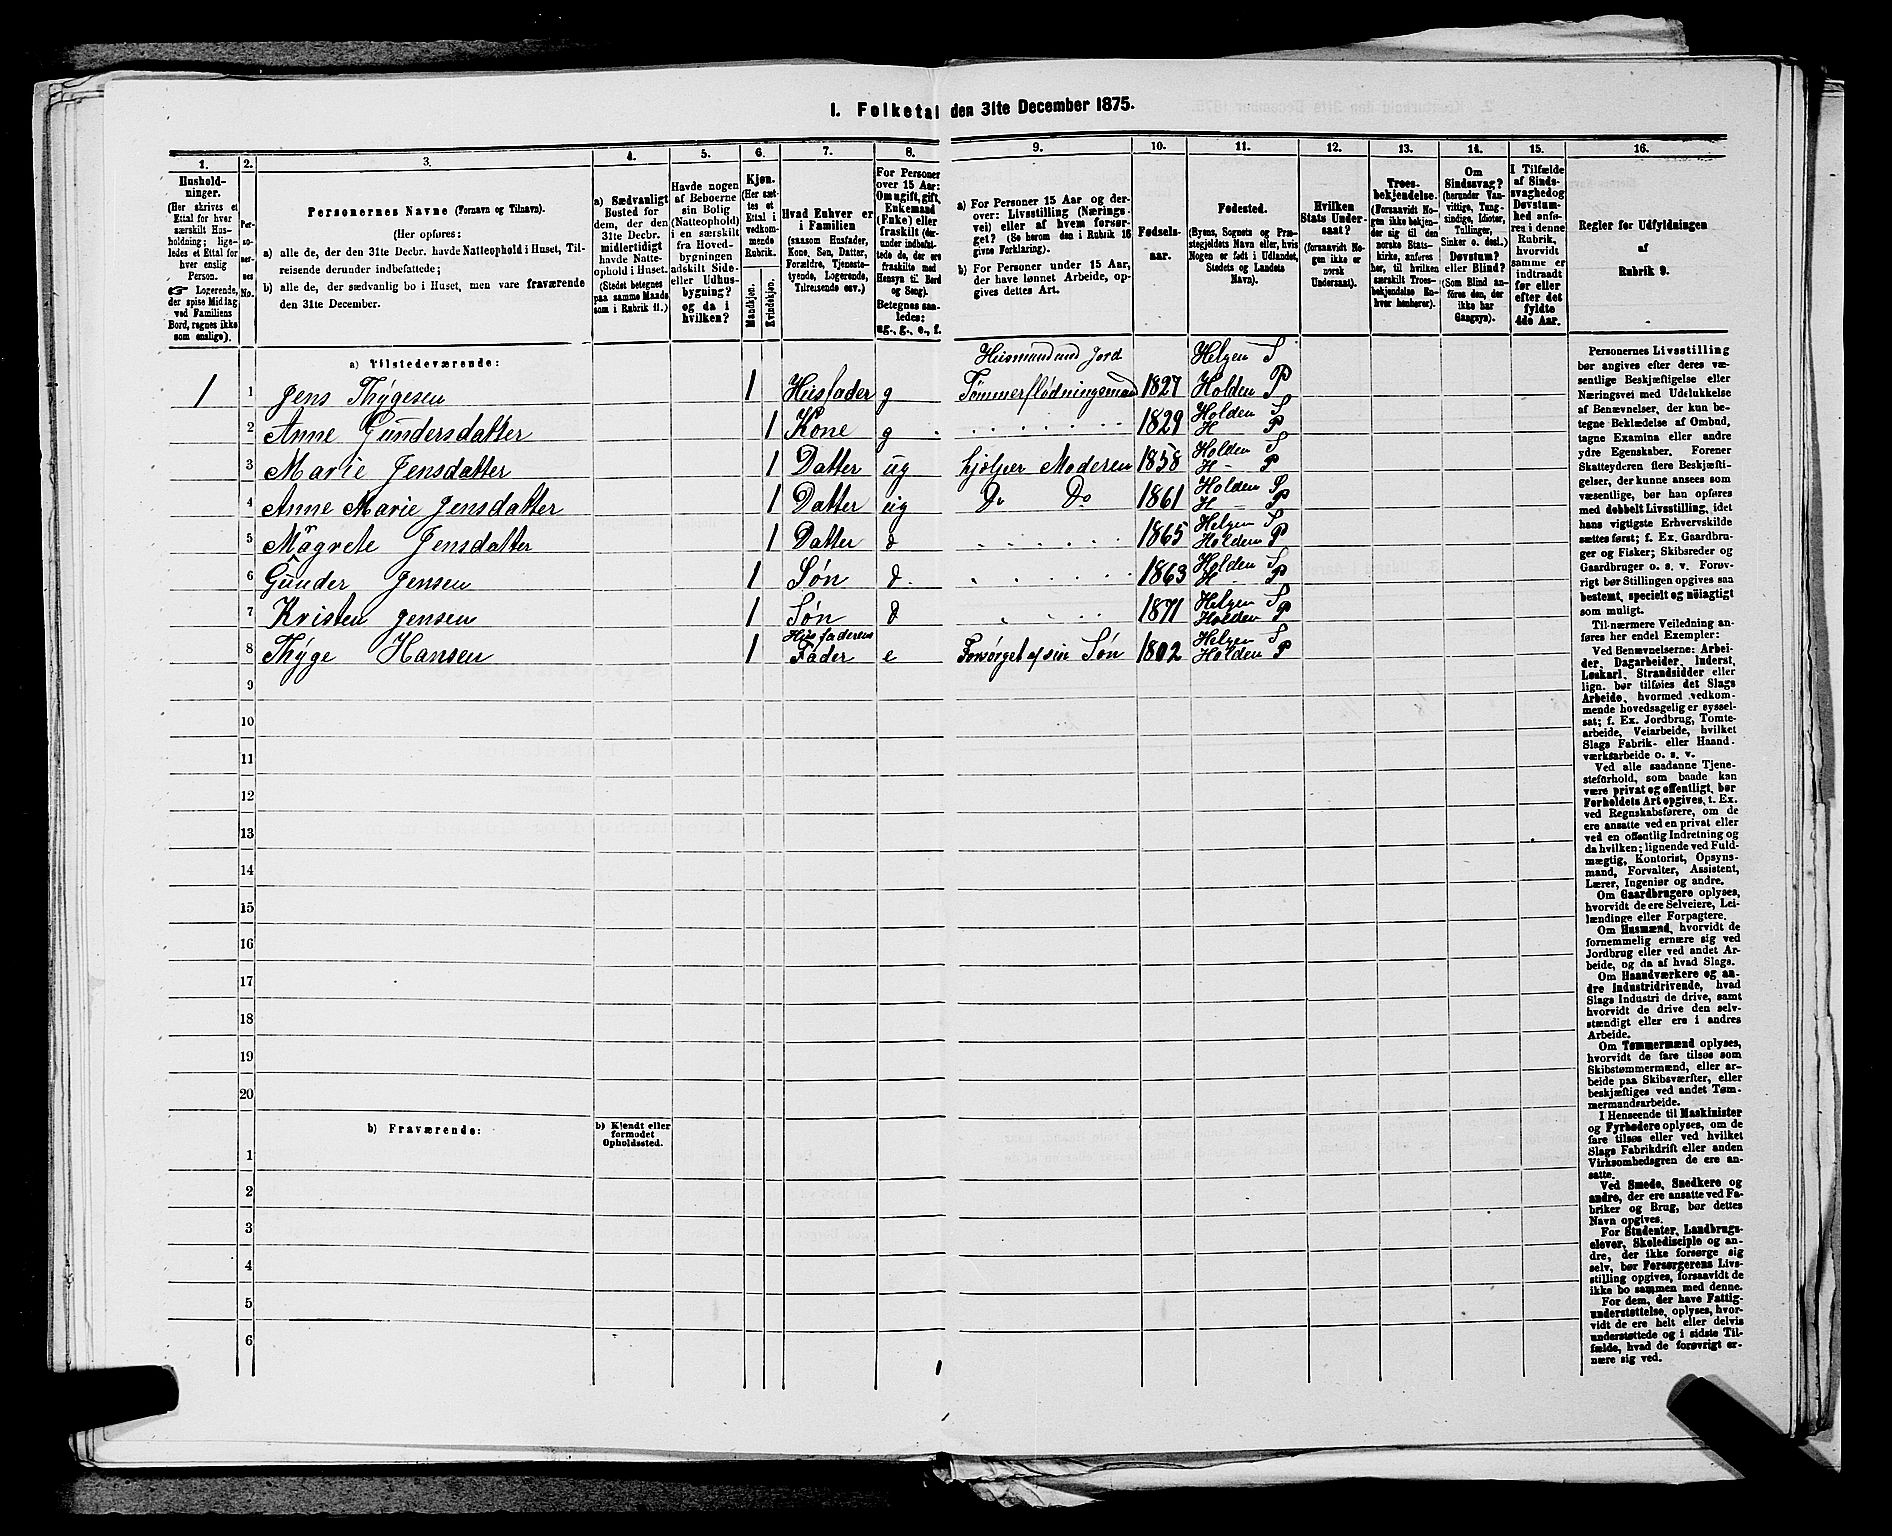 I. Folketal den 31te December 1875.
1. 2. 3. 4. 5. 6. 7. 8. 9. 10. 11. 12. 13. 14. 15. 16.
Hushold-
ninger.
(Her skrives et
Ettal for hver
særskilt Hus-
holdning; lige-
ledes et Ettal for
hver enslig
Person.
☞ Logerende,
der spise Middag
ved Familiens
Bord, regnes ikke
som enslige).
Per-
so-
ner-
nes
No.
Personernes Navne (Fornavn og Tilnavn).
(Her opføres:
a) alle de, der den 31te Decbr. havde Natteophold i Huset, Til-
reisende derunder indbefattede;
b) alle de, der sædvanlig bo i Huset, men vare fraværende
den 31te December.
a) Sædvanligt
Bosted for
dem, der den
31te Decbr.
midlertidigt
havde Natte-
ophold i Huset.
(Stedet betegnes
paa samme Maade
som i Rubrik 11.)
Havde nogen
af Beboerne
sin Bolig
(Natteophold)
i en særskilt
fra Hoved-
bygningen
adskilt Side-
eller Udhus-
bygning?
og da i
hvilken?
Kjøn.
(Her sæt-
tes et
Ettal i
vedkom-
mende
Rubrik.
Mandkjøn.
Kvindekjøn.
Hvad Enhver er
i Familien
(saasom Husfader,
Kone, Søn, Datter,
Forældre, Tjeneste-
tyende, Logerende,
Tilreisende osv.)
For Personer
over 15 Aar:
Om ugift, gift,
Enkemand
(Enke) eller
fraskilt (der-
under indbefat-
tede de, der ere
fraskilte med
Hensyn til Bord
og Seng).
Betegnes saa-
ledes:
ug., g., e., f.
a) For Personer 15 Aar og der-
over: Livsstilling (Nærings-
vei) eller af hvem forsør-
get? (Se herom den i Rubrik 16
givne Forklaring).
b) For Personer under 15 Aar,
der have lønnet Arbeide, op-
gives dettes Art.
Fødsels-
aar.
Fødested.
(Byens, Sognets og Præ-
stegjeldets Navn eller, hvis
Nogen er født i Udlandet,
Stedets og Landets
Navn).
Hvilken
Stats Under-
saat?
(forsaavidt No-
gen ikke er
norsk
Undersaat).
Troes-
bekjendelse.
(Forsaavidt No-
gen ikke bekjen-
der sig til den
norske Stats-
kirke, anføres
her, til hvilken
særskilt Troes-
bekjendelse En-
hver henhører).
Om
Sindssvag?
(herunder Van-
vittige, Tung-
sindige, Idioter,
Tullinger,
Sinker o. desl.)
Døvstum?
eller Blind?
(Som Blind an-
føres den, der
ikke har
Gangsyn).
I Tilfælde
af Sinds-
svaghed og
Døvstum-
hed anfø-
res i denne
Rubrik,
hvorvidt
samme er
indtraadt
før eller
efter det
fyldte
4de Aar.
Regler for Udfyldningen
af
Rubrik 9.
a) Tilstedeværende:
Husmand md Jord Helgen S
1 1 Jens Thygesen 1 Husfader g Tømmerflødningsmand 1827 Holden P
2 Anne Gundersdatter 1 Kone g 1829 Holden S H — P
3 Marie Jensdatter 1 Datter ug hjelper Moderen 1858 Holden S H — P
4 Anne Marie Jensdatter 1 Datter ug Do Do 1861 Holden S H — P
5 Magrete Jensdatter 1 Datter 1865 Helgen S Holden P
6 Gunder Jensen 1 Søn 1863 Holden S H — P
7 Kristen Jensen 1 Søn 1871 Helgen S Holden P
8 Thyge Hansen 1 Husfaderens Fader e Forsørget af sin Søn 1802 Helgen S Holden P
9
10
11
12
13
14
15
16
17
18
19
20
b) Fraværende:
b) Kjendt eller
formodet
Opholdssted.
1
2
3
4
5
6
Personernes Livsstilling
bør angives efter deres væ-
sentlige Beskjæftigelse eller
Næringsvei med Udelukkelse
af Benævnelser, der kun be-
tegne Beklædelse af Ombud,
tagne Examina eller andre
ydre Egenskaber. Forener
Skatteyderen flere Beskjæfti-
gelser, der kunne ansees som
væsentlige, bør han opføres
med dobbelt Livsstilling, idet
hans vigtigste Erhvervskilde
sættes først; f. Ex. Gaardbru-
ger og Fisker; Skibsreder og
Gaardbruger o. s. v. Forøv-
rigt bør Stillingen opgives saa
bestemt, specielt og nöiagtigt
som muligt.
Til nærmere Veiledning an-
føres her endel Exempler:
Ved Benævnelserne: Arbei-
der, Dagarbeider, Inderst,
Løskarl, Strandsidder eller
lign. bør tilføies det Slags
Arbeide, hvormed vedkom-
mende hovedsagelig er syssel-
sat; f. Ex. Jordbrug, Tomte-
arbeide, Veiarbeide, hvilket
Slags Fabrik- eller Haand-
værksarbeide o. s. v.
Ved alle saadanne Tjene-
steforhold, som baade kan
være privat og offentligt, bør
Forholdets Art opgives, t. Ex.
ved Regnskabsførere, om de
ere ansatte ved en privat eller
ved en offentlig Indretning og
da hvilken; lignende ved Fuld-
mægtig, Kontorist, Opsyns-
mand, Forvalter, Assistent,
Lærer, Ingeniør og andre.
Om Gaardbrugere oplyses,
hvorvidt de ere Selveiere, Lei-
lændinge eller Forpagtere.
Om Husmænd, hvorvidt de
fornemmelig ernære sig ved
Jordbrug eller ved andet Ar-
beide, og da af hvad Slags.
Om Haandværkere og an-
dre Industridrivende, hvad
Slags Industri de drive, samt
hvorvidt de drive den selv-
stændigt eller ere i andres
Arbeide.
Om Tømmermænd oplyses,
hvorvidt de fare tilsøs som
Skibstømmermænd, eller ar-
beide paa Skibsværfter, eller
beskjæftiges ved andet Tøm-
mermandsarbeide.
I Henseende til Maskinister
og Fyrbødere oplyses, om de
fare tilsøs eller ved hvilket
Slags Fabrikdrift eller anden
Virksomhedsgren de ere an-
satte.
Ved Smede, Snedkere og
andre, der ere ansatte ved Fa-
briker og Brug, bør dettes
Navn opgives.
For Studenter, Landbrugs-
elever, Skoledisciple og an-
dre, der ikke forsørge sig
selv, bør Forsørgerens Livs-
stilling opgives, forsaavidt de
ikke bo sammen med denne.
For dem, der have Fattig-
understøttelse, oplyses, hvor-
vidt de ere helt eller delvis
understøttede og i sidste Til-
fælde, hvad de forøvrigt er-
nære sig ved.